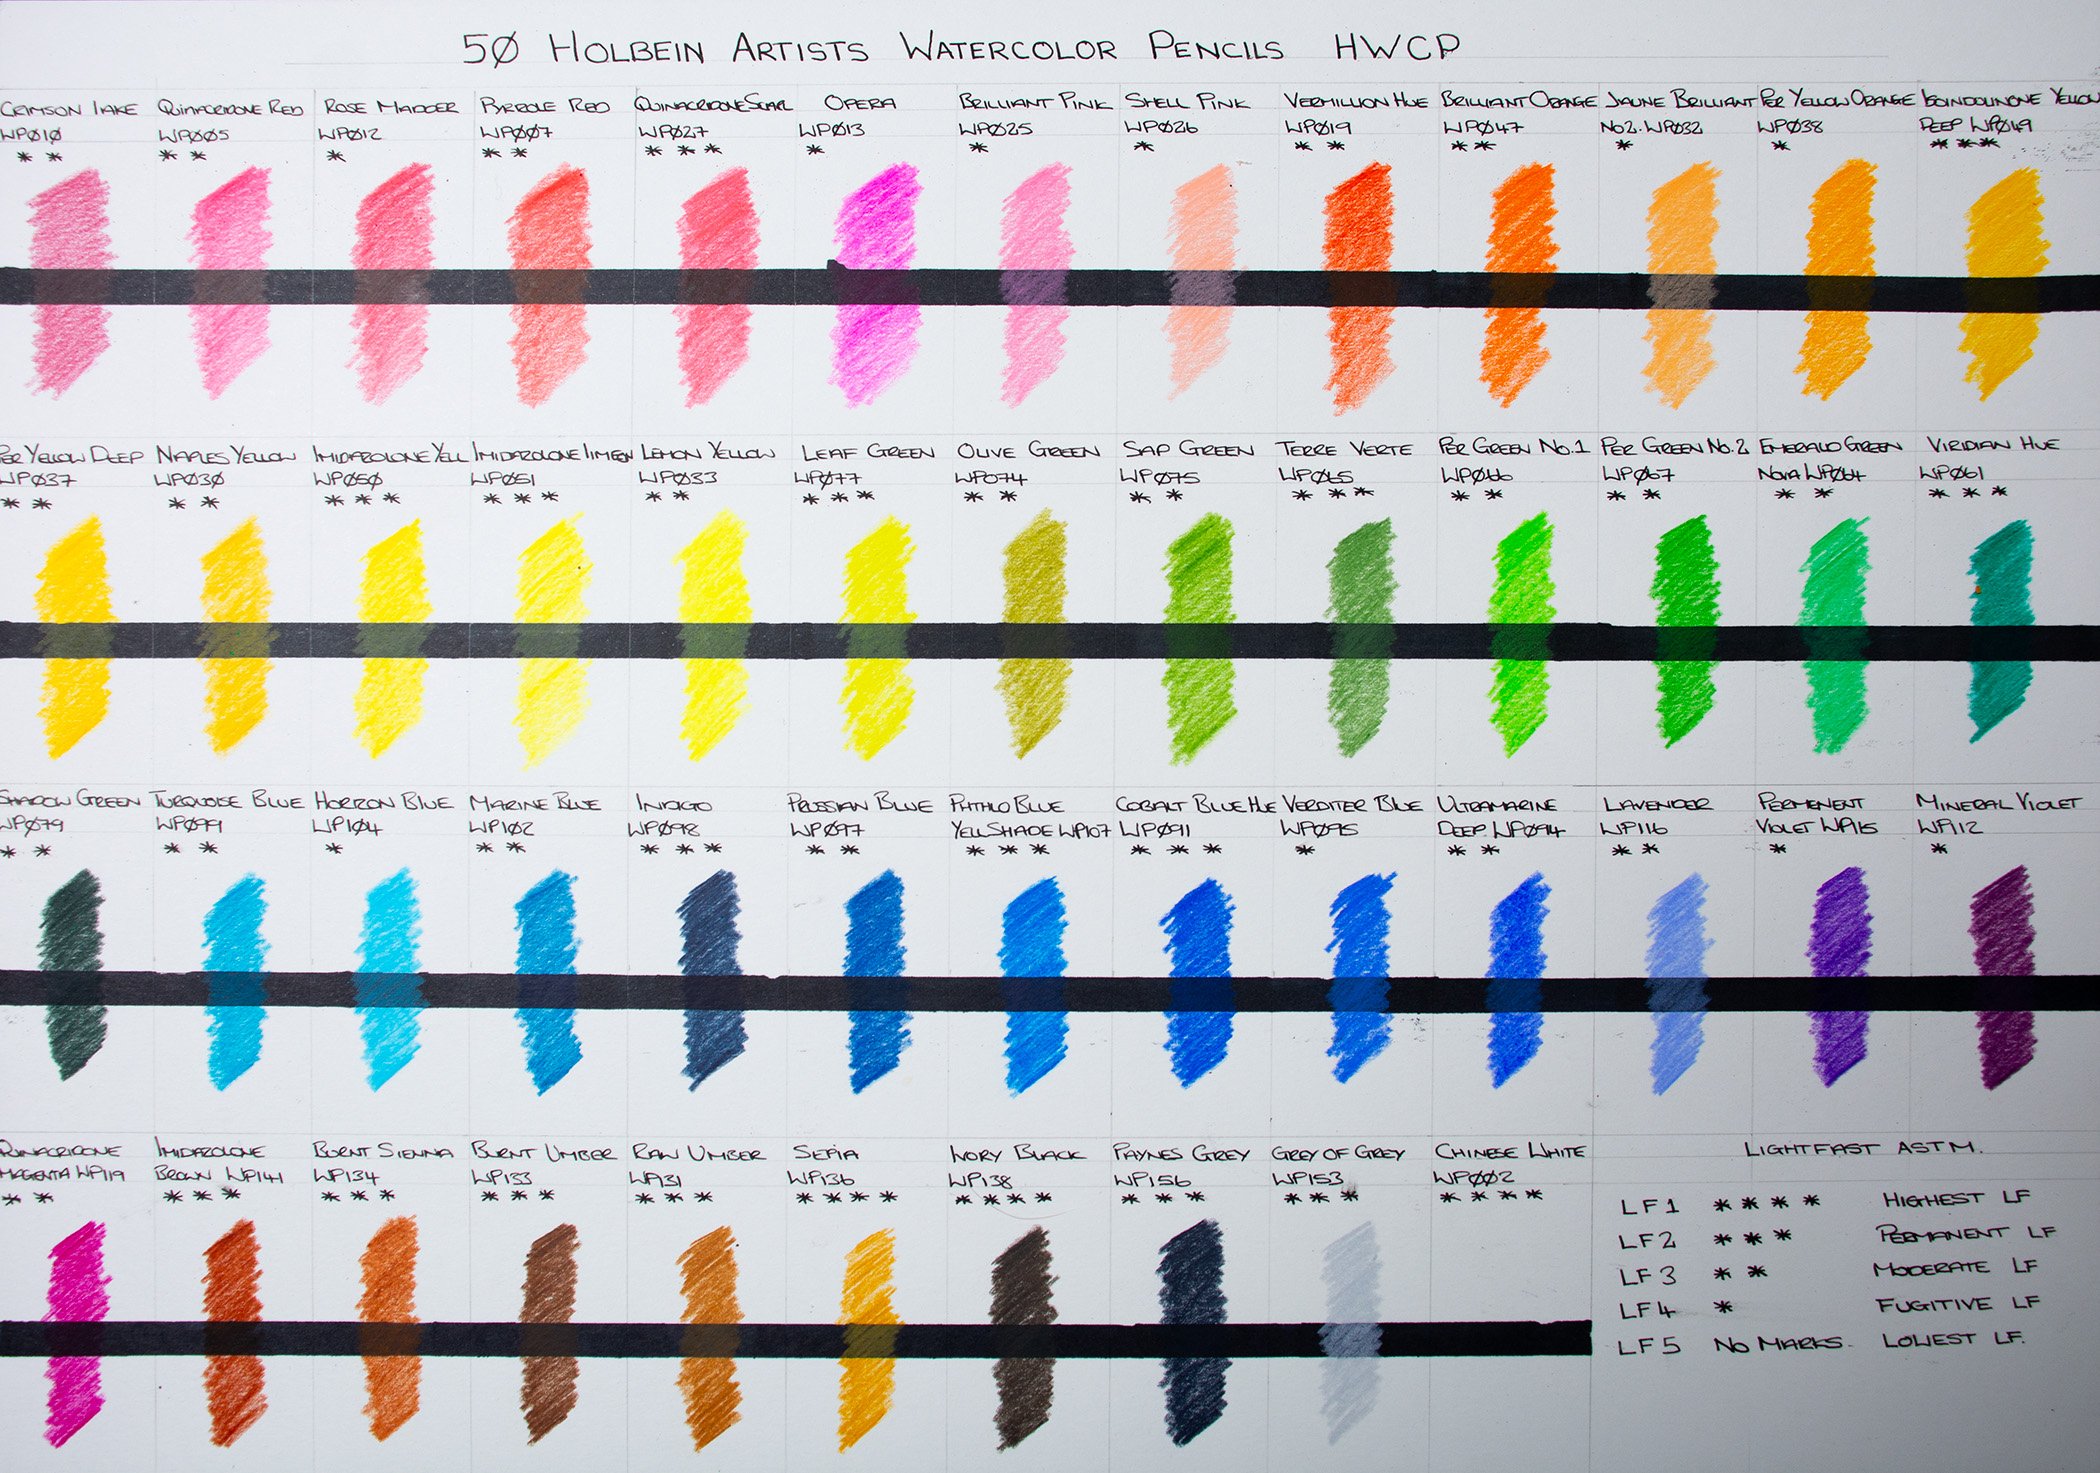 50 HOLBEIN ARTISTS WATERCOLOR PENCILS HWCP
CRIMSON LAKE
WP010
* *
QUINACRIDONE RED
WP005
* *
ROSE MADDER
WP012
*
PYRROLE RED
WP007
* *
QUINACRIDONE SCARL
WP027
* * *
OPERA
WP013
*
BRILLIANT PINK
WP025
*
SHELL PINK
WP026
*
VERMILLION HUE
WP019
* *
BRILLIANT ORANGE
WP047
* *
JAUNE BRILLIANT
NO2. WP032
*
PER YELLOW ORANGE
WP038
*
ISOINDOLINONE YELLOW
DEEP WP049
* * *
PER YELLOW DEEP
WP037
* *
NAPLES YELLOW
WP030
* *
IMIDAZOLONE YELL
WP050
* * *
IMIDAZOLONE LIMEON
WP051
* * *
LEMON YELLOW
WP033
* *
LEAF GREEN
WP077
* * *
OLIVE GREEN
WP074
* *
SAP GREEN
WP075
* *
TERRE VERTE
WP065
* * *
PER GREEN NO.1
WP066
* *
PER GREEN NO.2
WP067
* *
EMERALD GREEN
NOVA WP064
* *
VIRIDIAN HUE
WP061
* * *
SHADOW GREEN
WP079
* *
TURQUOISE BLUE
WP099
* *
HORIZON BLUE
WP104
*
MARINE BLUE
WP102
* *
INDIGO
WP098
* * *
PRUSSIAN BLUE
WP097
* *
PHTHLO BLUE
YELL SHADE WP107
* * *
COBALT BLUE HUE
WP091
* * *
VERDITER BLUE
WP095
*
ULTRAMARINE
DEEP WP094
* *
LAVENDER
WP116
* *
PERMENENT
VIOLET WP115
*
MINERAL VIOLET
WP112
*
QUINACRIDONE
MAGENTA WP119
* *
IMIDAZOLONE
BROWN WP141
* * *
BURNT SIENNA
WP134
* * *
BURNT UMBER
WP133
* * *
RAW UMBER
WP131
* * *
SEPIA
WP136
* * * *
IVORY BLACK
WP138
* * * *
PAYNES GREY
WP156
* * *
GREY OF GREY
WP153
* * *
CHINESE WHITE
WP002
* * * *
LIGHTFAST ASTM.
LF1 * * * * HIGHEST LF
LF2 * * * PERMANENT LF
LF3 * * MODERATE LF
LF4 * FUGITIVE LF
LF5 NO MARKS. LOWEST LF.